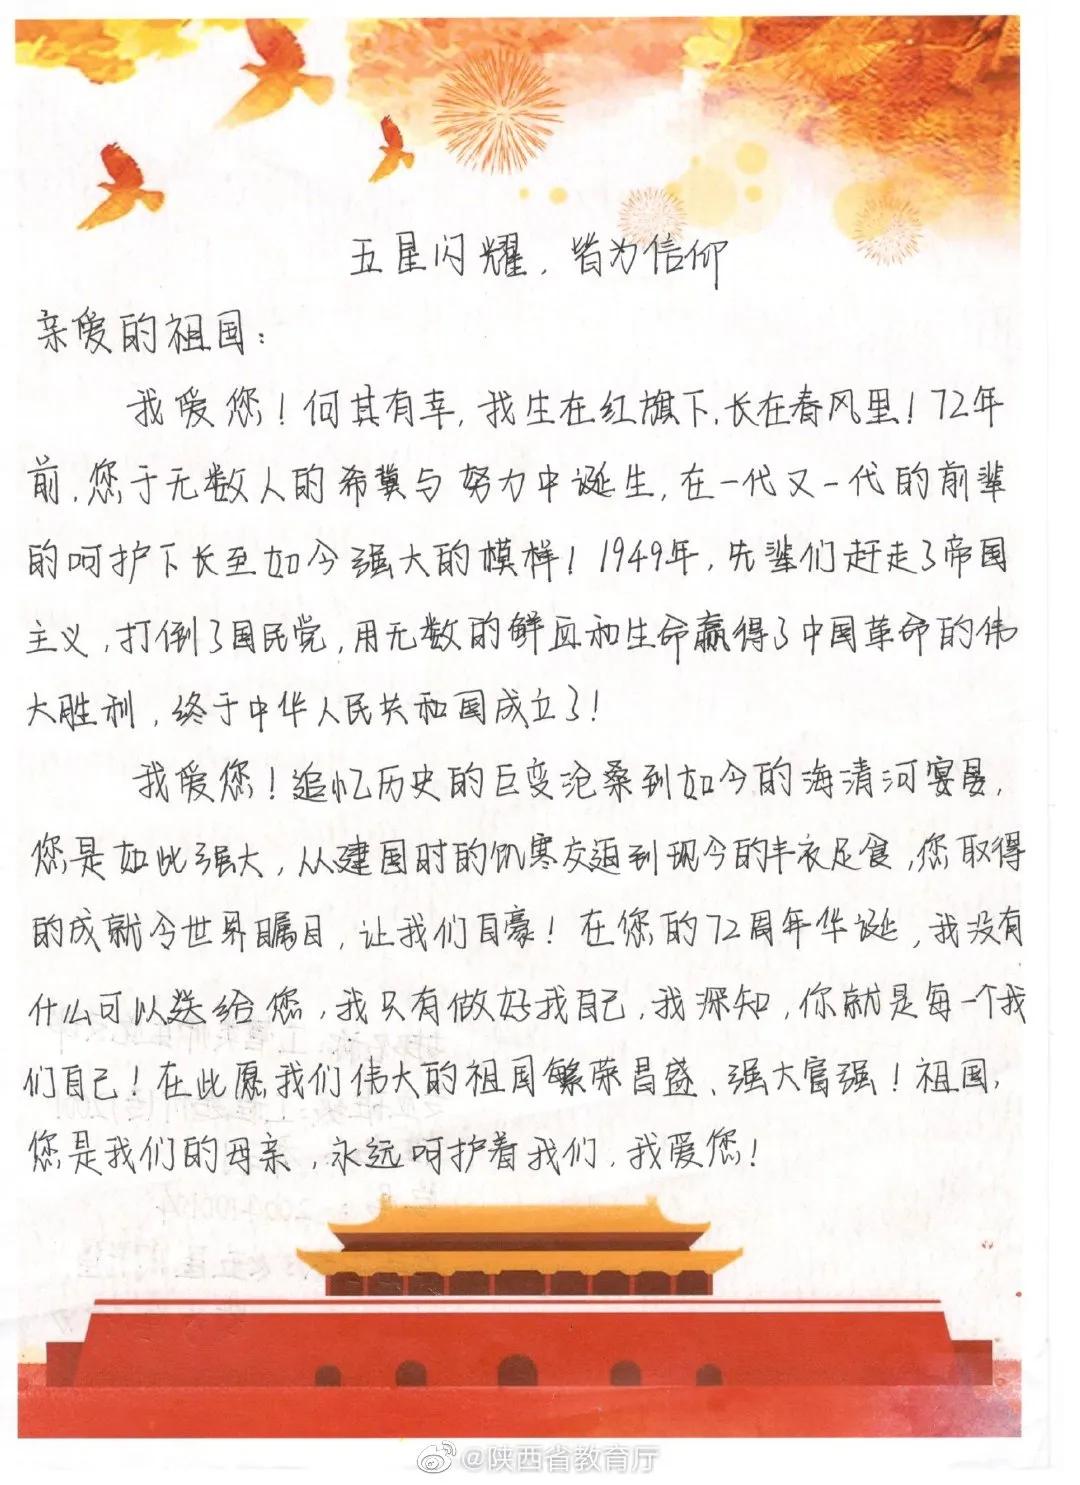 五星闪耀，皆为信仰
亲爱的祖国：
我爱您！何其有幸，我生在红旗下，长在春风里！72年
前，您于无数人的希冀与努力中诞生，在一代又一代的前辈
的呵护下长至如今强大的模样！1949年，先辈们赶走了帝国
主义，打倒了国民党，用无数的鲜血和生命赢得了中国革命的伟
大胜利，终于中华人民共和国成立了！
我爱您！追忆历史的巨变沧桑到如今的海清河宴晏，
您是如此强大，从建国时的饥寒交迫到现今的丰衣足食，您取得
的成就令世界瞩目，让我们自豪！在您的72周年华诞，我没有
什么可以送给您，我只有做好我自己，我深知，你就是每一个我
们自己！在此愿我们伟大的祖国繁荣昌盛、强大富强！祖国，
您是我们的母亲，永远呵护着我们，我爱您！
@陕西省教育厅